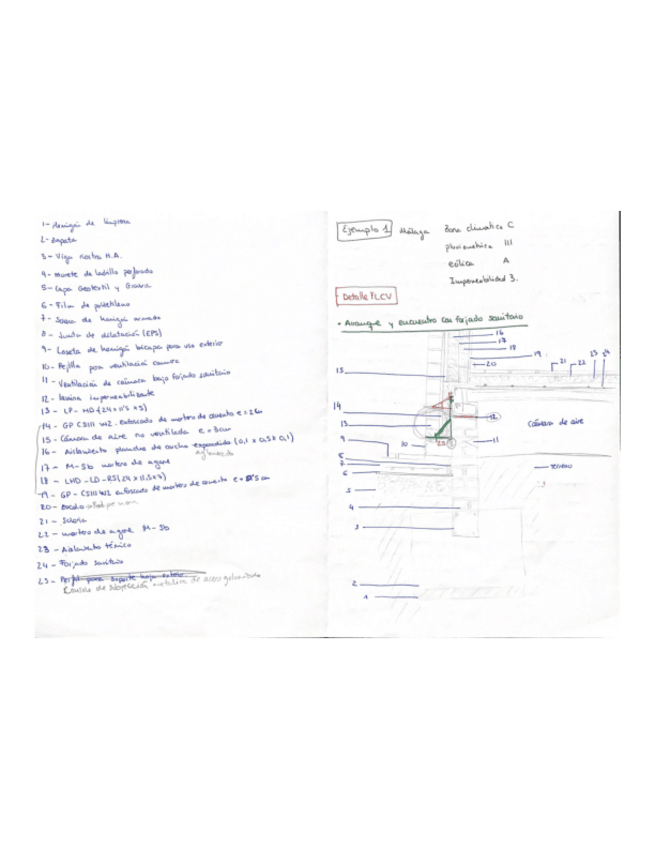 1- Hormigón de limpieza
2- Zapata
3- Viga riostra H.A.
4- Murete de ladrillo perforado
5- Capa Geotextil y Grava
6- Film de polietileno
7- Solera de hormigón armado
8- Junta de dilatación (EPS)
9- Loseta de hormigón bicapa para uso exterior
10- Rejilla para ventilación cámara
11- Ventilación de cámara bajo forjado sanitario
12- lámina impermeabilizante
13- LP-HD (24x11'5x5)
14- GP CSIII W2. enfoscado de mortero de cemento e=2cm
15- Cámara de aire no ventilada e=3cm
16- Aislamiento plancha de corcho expandido (0,1 x 0,5 x 0,1)
aglomerado
17- M-5b mortero de agarre
18- LHD-LD-RS(24x11,5x7)
19- GP-CSIII W1 enfoscado de mortero de cemento e=
20-
21- Solería
22- mortero de agarre M-5b
23- Aislamiento térmico
24- Forjado sanitario
25- Perfil para soporte hoja exterior
metálica de acero galvanizado
Ejemplo 1 Málaga Zona climática C
pluviométrica III
eólica A
Impermeabilidad 3.
Detalle FLCV
• Arranque y encuentro con forjado sanitario
16
17
18
19
20
21
22
23
24
15
14
13
12
Cámara de aire
9
10
25
11
8
7
6
terreno
5
4
3
2
1